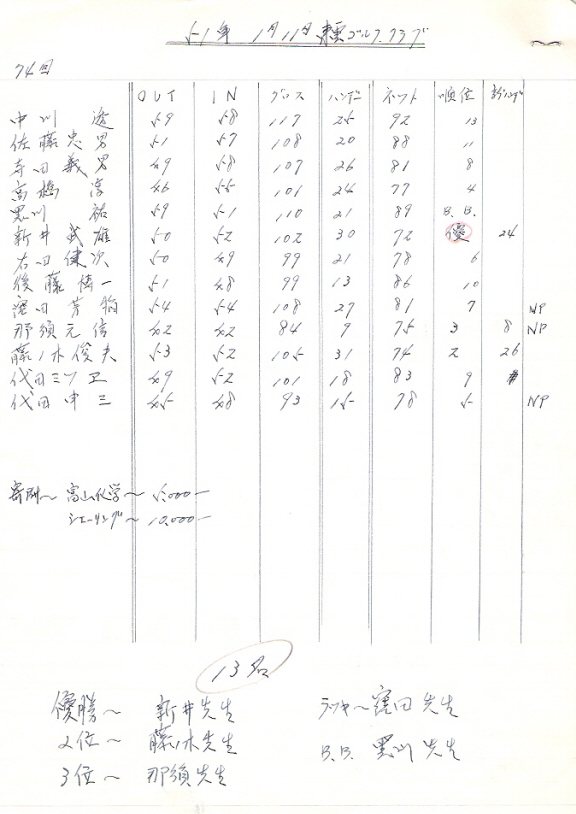 51年 1月11日 ゴルフ.クラブ
74回
OUT IN グロス ハンデー ネット 順位 新ハンデ
中川 透 59 58 117 25 92 13
佐藤忠男 51 57 108 20 88 11
寺田義男 49 58 107 26 81 8
高橋 淳 46 55 101 24 77 4
黒川 祐 59 51 110 21 89 B.B.
新井武雄 50 52 102 30 72 優 24
右田健次 50 49 99 21 78 6
後藤博一 51 48 99 13 86 10
窪田芳 54 54 108 27 81 7 NP
那須元信 42 42 84 9 75 3 8 NP
藤ノ木俊夫 53 52 105 31 74 2 26
代田三ツ卫 49 52 101 18 83 9
代田申三 45 48 93 15 78 5 NP
寄附〜 富山化学〜 5.000-
シエーリング〜 10.000-
13名
優勝〜 新井先生 ラッキー〜窪田先生
2位〜 藤ノ木先生 B.B. 黒川先生
3位〜 那須先生